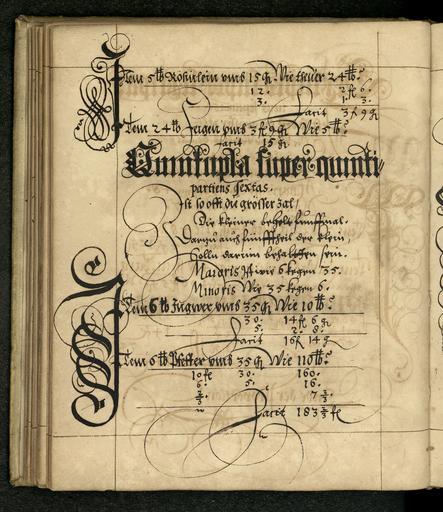 Item 5 ℔ Rosinlein vmb 15 gr. Wie theuer 24 ℔?
12. 2 fl 6.
3. 1. 3.
Facit 3 fl 9 gr
Item 24 ℔ Feigen vmb 3 fl 9 gr Wie 5 ℔?
facit 15 gr.
Quintupla super quinti-
partiens sextas.
Ist so offt die grösser zal,
Die kleiner beheltt fünffmal.
Darzu auch fünfftheil der klein,
Solln darinn behaltten sein.
Maioris Ist wie 6 kegen 35.
Minoris Wie 35 kegen 6.
Item 6 ℔ Ingwer vmb 35 gr Wie 10 ℔?
30. 14 fl 6 gr
5. 2. 8.
Facit 16 fl 14 gr
Item 6 ℔ Pfeffer vmb 35 gr Wie 110 ℔?
10 fl 30. 160.
6. 5. 16.
2/3. 7 1/3
Facit 183 1/3 fl